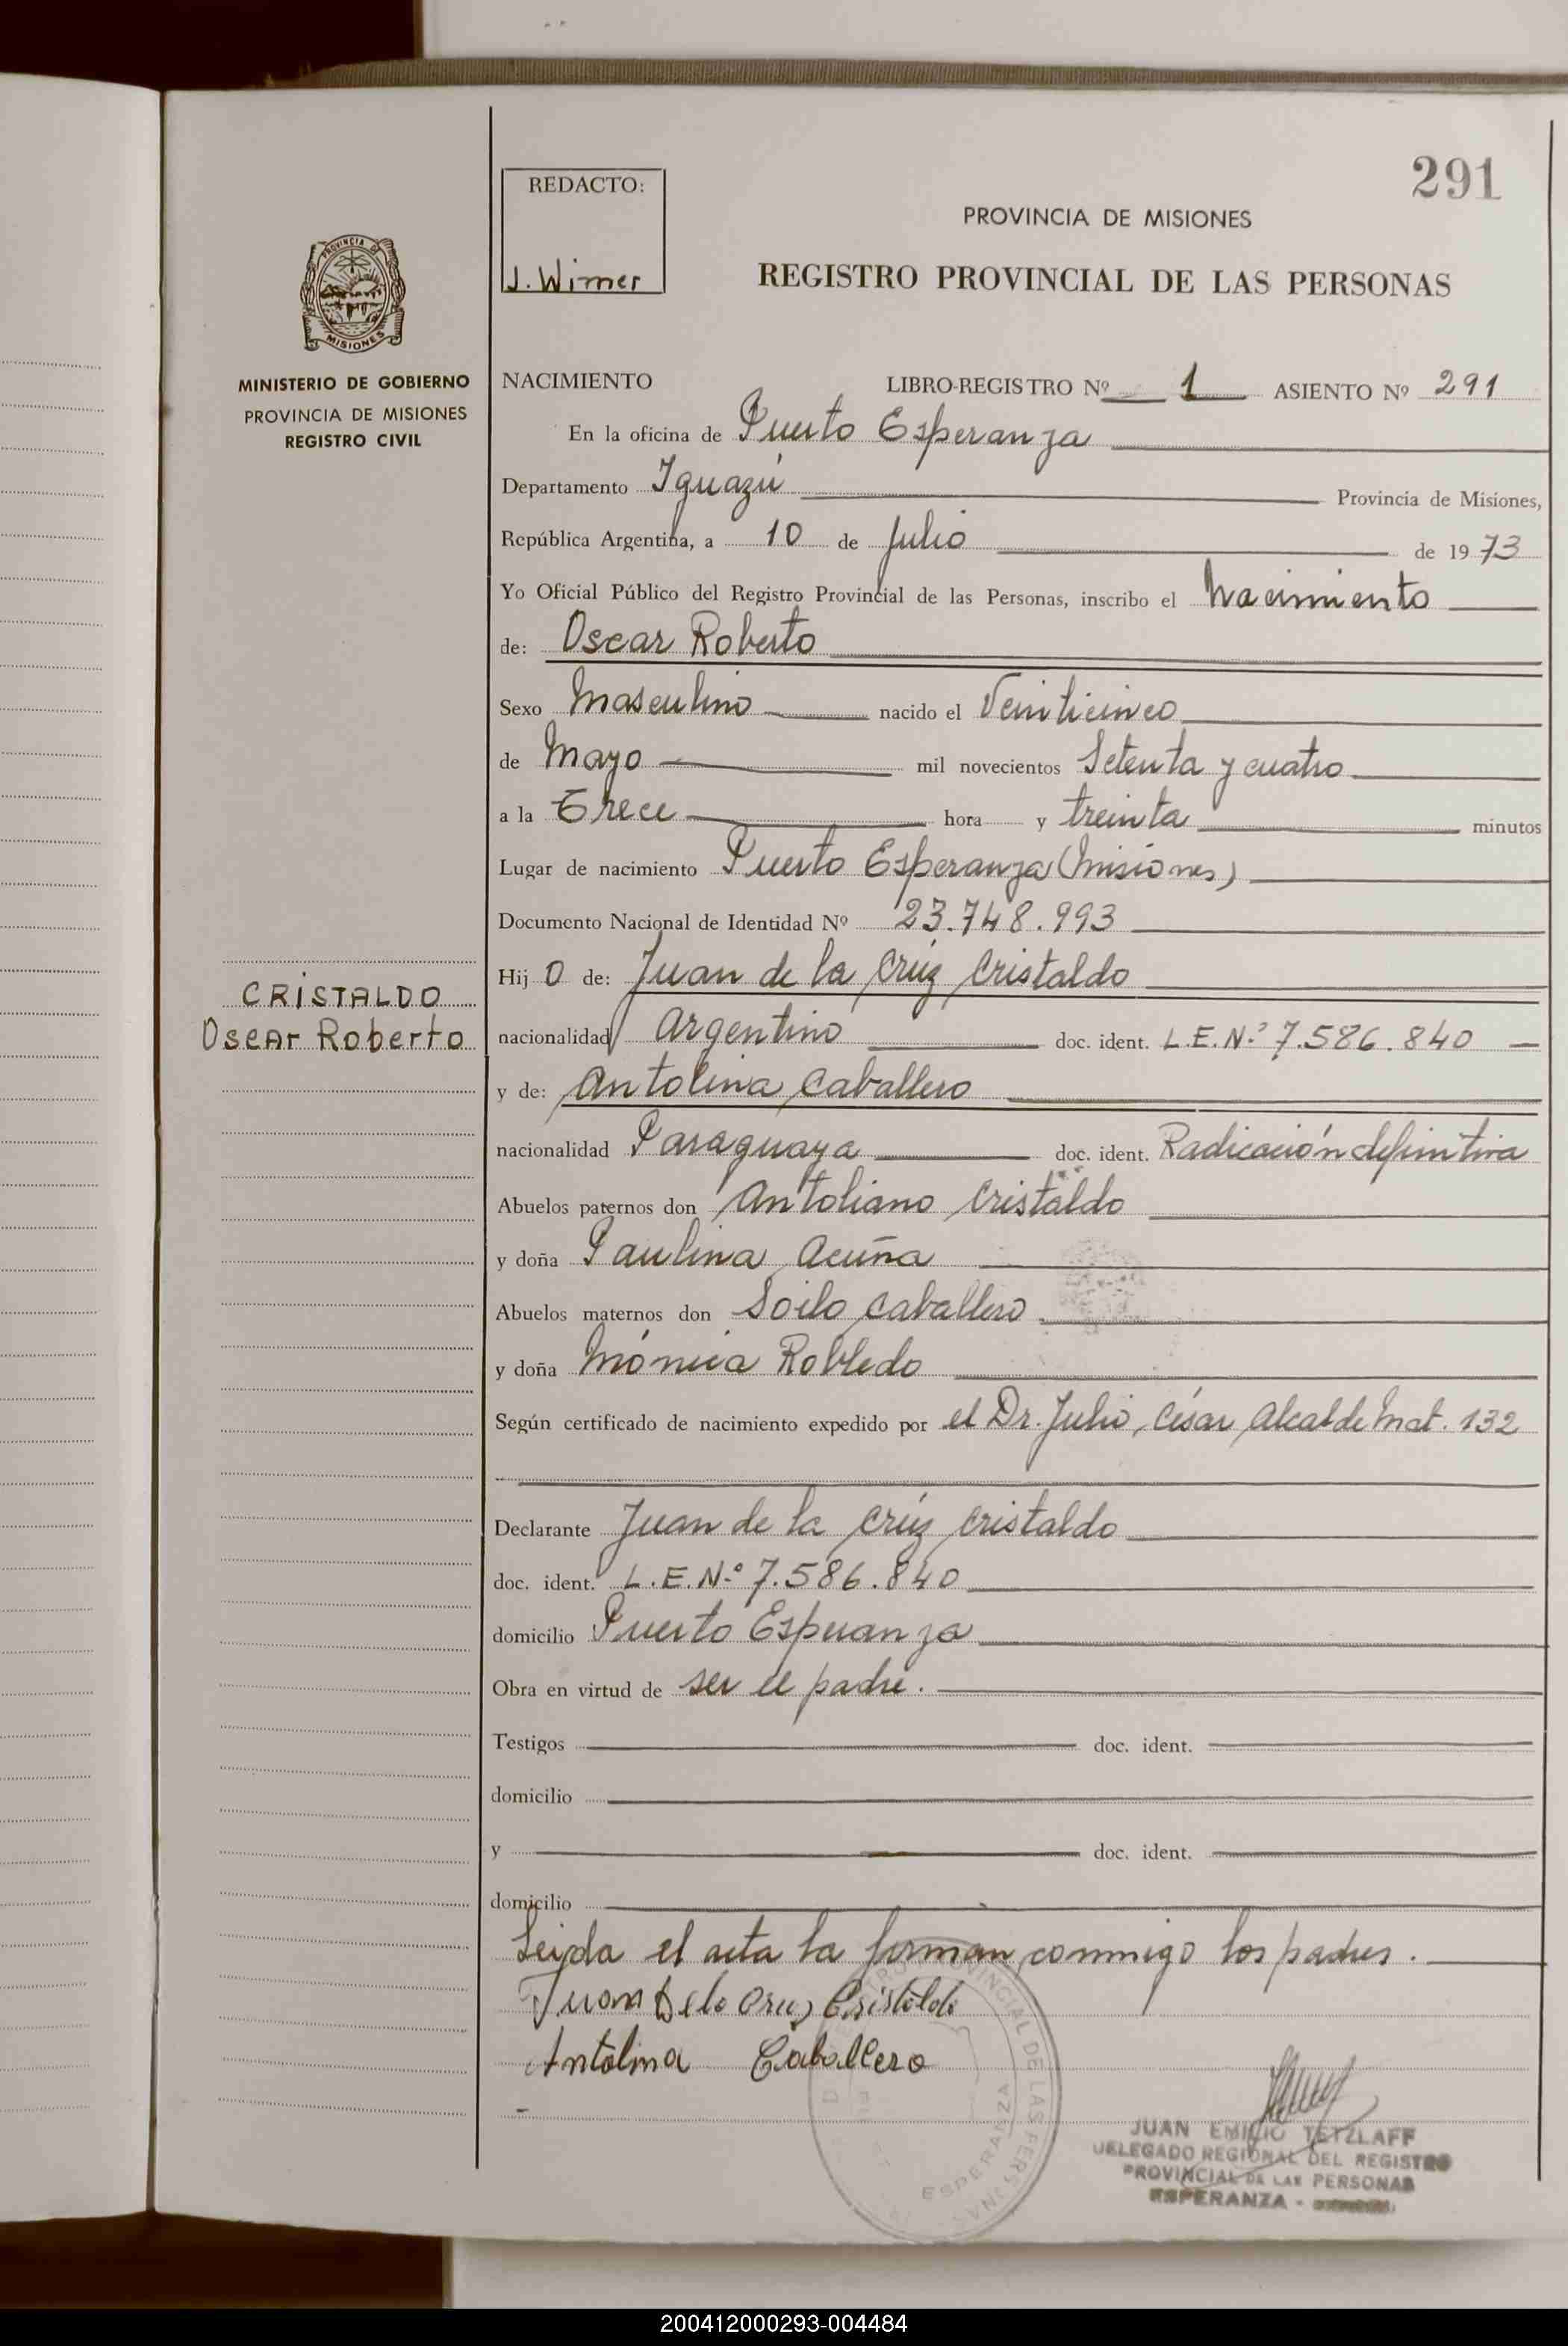 291
REDACTO:
J. Wimer
PROVINCIA DE MISIONES
REGISTRO PROVINCIAL DE LAS PERSONAS
PROVINCIA DE
MISIONES
MINISTERIO DE GOBIERNO
PROVINCIA DE MISIONES
REGISTRO CIVIL
NACIMIENTO LIBRO-REGISTRO Nº 1 ASIENTO Nº 291
En la oficina de Puerto Esperanza
Departamento Iguazú Provincia de Misiones,
República Argentina, a 10 de Julio de 1973
Yo Oficial Público del Registro Provincial de las Personas, inscribo el Nacimiento
de: Oscar Roberto
Sexo Masculino nacido el Veinticinco
de Mayo mil novecientos Setenta y cuatro
a la Trece hora y treinta minutos
Lugar de nacimiento Puerto Esperanza (Misiones)
Documento Nacional de Identidad Nº 23.748.993
Hij o de: Juan de la Crúz Cristaldo
CRISTALDO
Oscar Roberto
nacionalidad Argentino doc. ident. L.E.Nº 7.586.840
y de: Antolina Caballero
nacionalidad Paraguaya doc. ident. Radicación definitiva
Abuelos paternos don Antoliano Cristaldo
y doña Paulina Acuña
Abuelos maternos don Soilo Caballero
y doña Mónica Robledo
Según certificado de nacimiento expedido por el Dr. Julio César Alcalde Mat. 132
Declarante Juan de la Crúz Cristaldo
doc. ident. L.E.Nº 7.586.840
domicilio Puerto Esperanza
Obra en virtud de ser el padre.
Testigos doc. ident.
domicilio
y doc. ident.
domicilio
Leída el acta la firman conmigo los padres.
Juan De la Cruz Cristaldo
Antolina Caballero
PROVINCIAL DE LAS PERSONAS
ESPERANZA
JUAN EMILIO TETZLAFF
DELEGADO REGIONAL DEL REGISTRO
PROVINCIAL DE LAS PERSONAS
ESPERANZA -
200412000293-004484